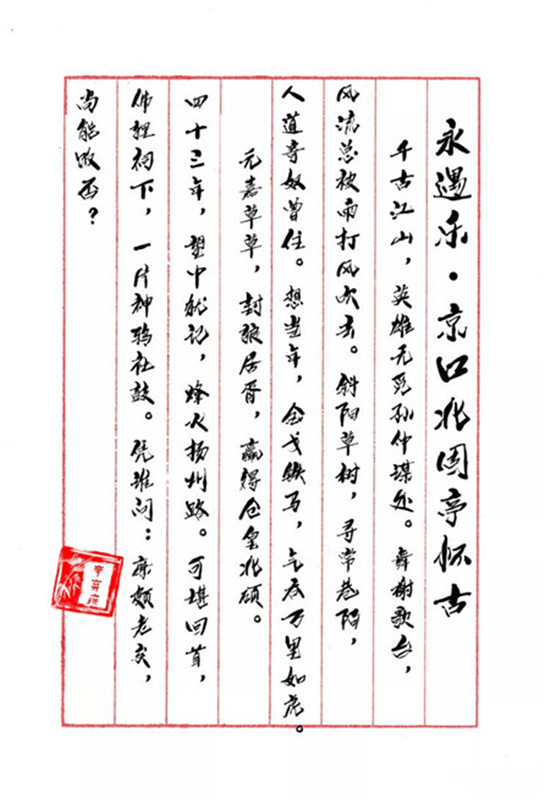 永遇乐·京口北固亭怀古
千古江山，英雄无觅孙仲谋处。舞榭歌台，
风流总被雨打风吹去。斜阳草树，寻常巷陌，
人道寄奴曾住。想当年，金戈铁马，气吞万里如虎。
元嘉草草，封狼居胥，赢得仓皇北顾。
四十三年，望中犹记，烽火扬州路。可堪回首，
佛狸祠下，一片神鸦社鼓。凭谁问：廉颇老矣，
尚能饭否？
辛弃疾